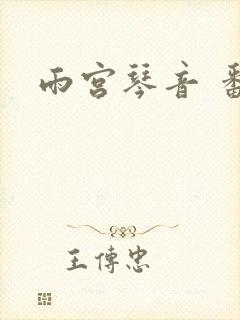 雨宫琴音 番
王傳忠